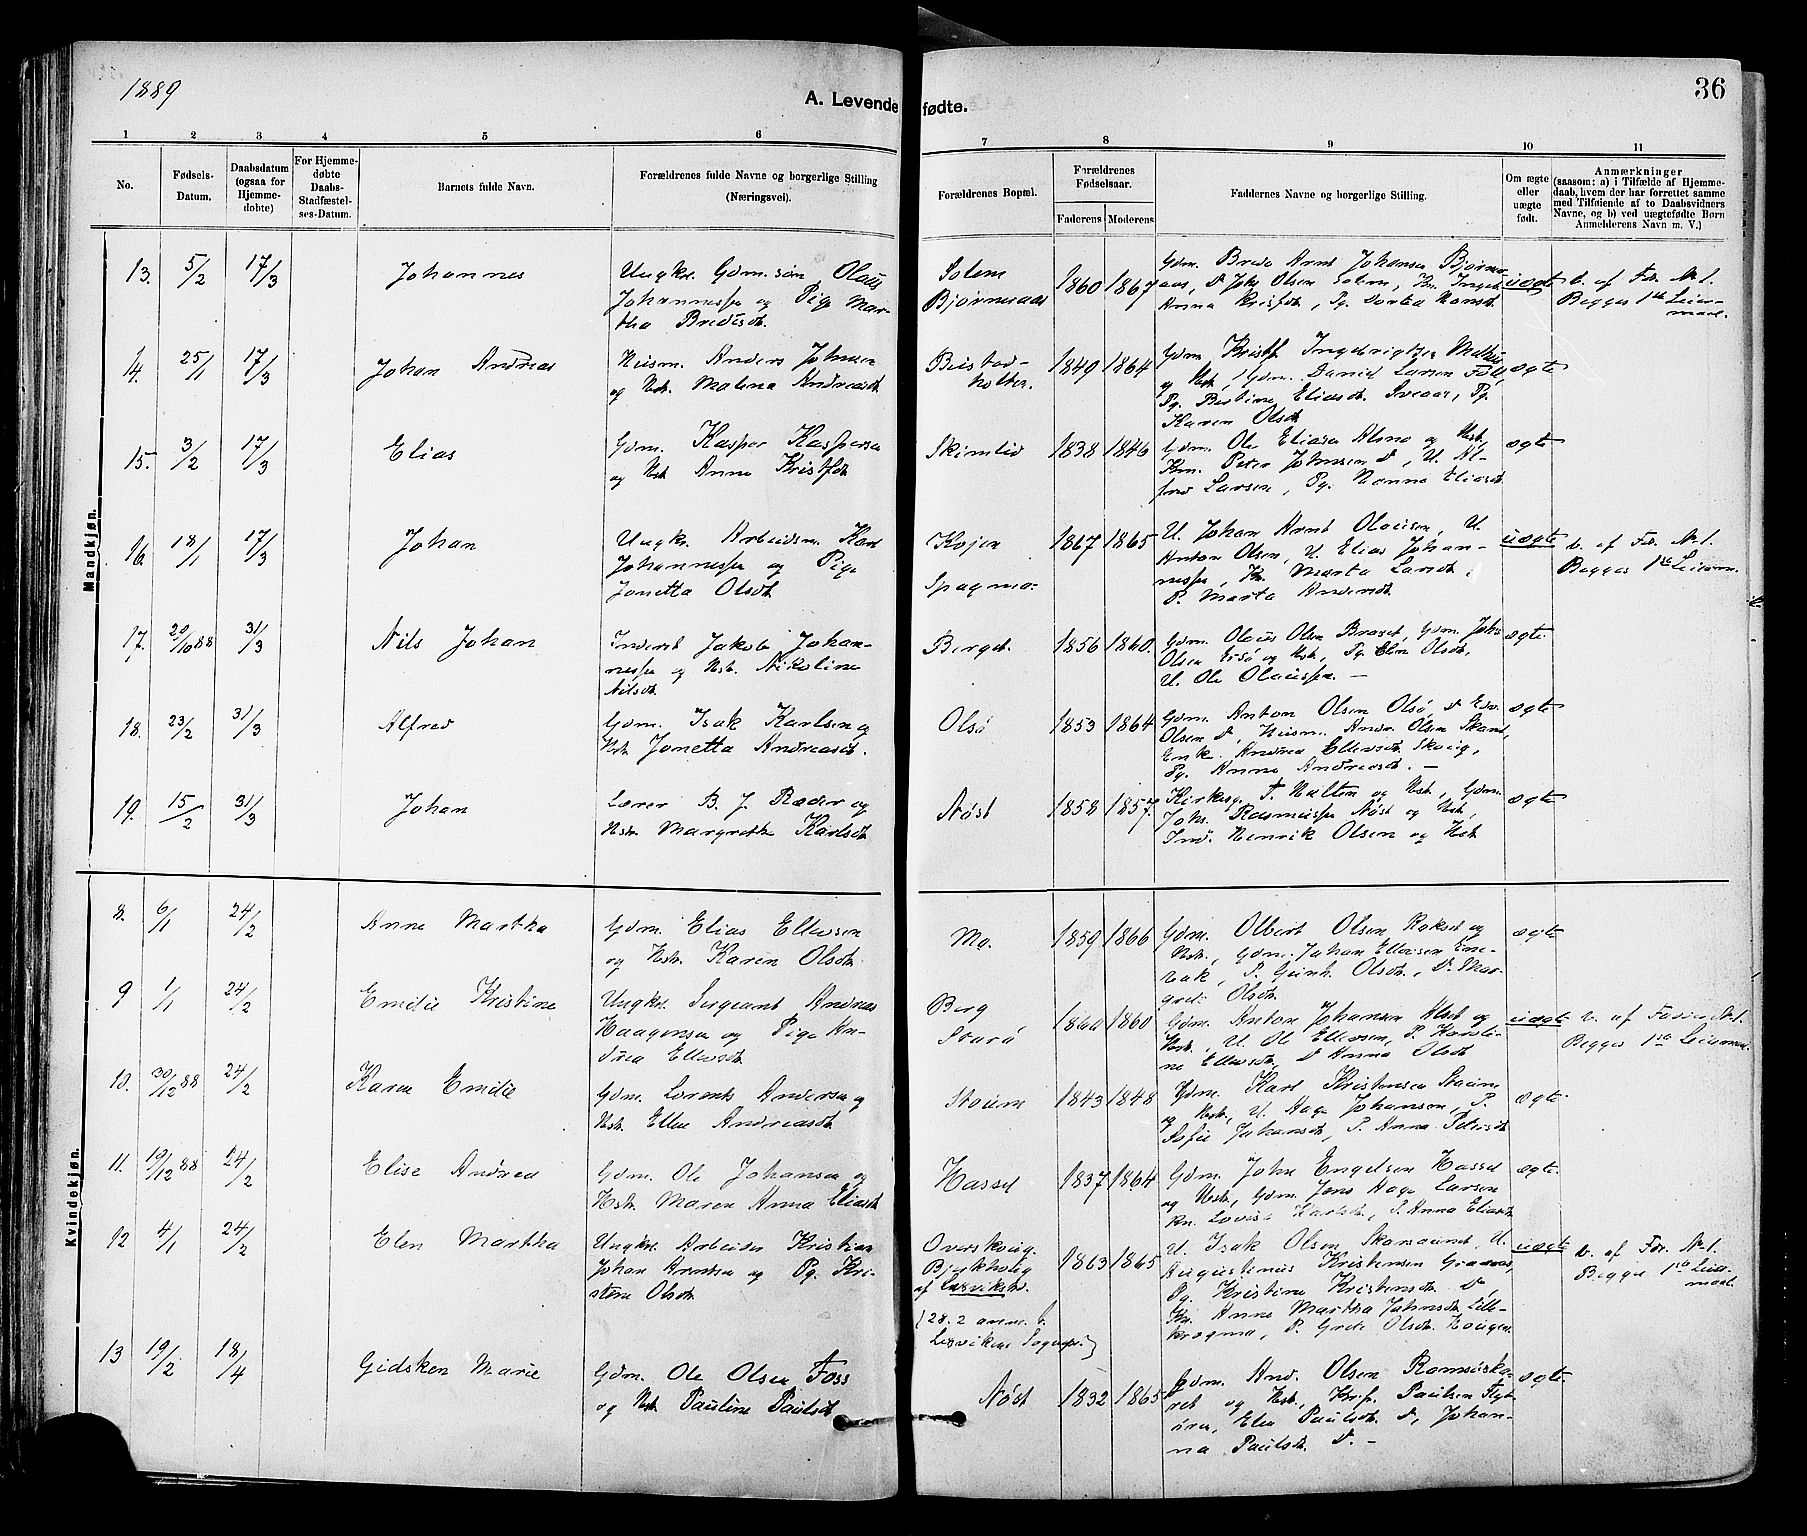 1889
A. Levende fødte.
36
1 2 3 4 5 6 7 8 9 10 11
No.
Fødsels-
Datum.
Daabsdatum
(ogsaa for
Hjemme-
døbte)
For Hjemme-
døbte
Daabs-
Stadfæstel-
ses-Datum.
Barnets fulde Navn.
Forældrenes fulde Navne og borgerlige Stilling
(Næringsvei).
Forældrenes Bopæl.
Forældrenes
Fødselsaar.
Faderens Moderens
Faddernes Navne og borgerlige Stilling.
Om ægte
eller
uægte
født.
Anmærkninger
(saasom: a) i Tilfælde af Hjemme-
daab, hvem der har forrettet samme
med Tilføiende af to Daabsvidners
Navne, og b) ved uægtefødte Børn
Anmelderens Navn m. V.)
Mandkjøn.
13. 5/2 17/3 Johannes
Ungkr. Gdm.søn Olaus
Johannessen og Pige Mar-
tha Bredesdt.
Solem
Bjørnesaas
1860 1867
Gdm. Brede Arnt Johansen Bjørne-
aas, D. Johs Olsen Solem, Kn. Inge
Anna Kristfdt, Pg. Dortea Hansdt
uægte
b. af Fa. No 1.
Begges 1ste Leier-
maal.
14. 25/1 17/3 Johan Andreas
Husm. Anders Johnsen
og Hst. Malena Andreasdt
Beistad-
holten
1849 1864
Gdm. Kristf. Ingebrigtsen
og Hst., Gdm. Daniel Larsen Foll,
Pg. Eliasdt. Sveaas, Pg.
Karen Olsdt.
ægte
15. 3/2 17/3 Elias
Gdm. Kasper Kaspersen
og Hst. Anne Kristfdt
Skimlid
1838 1846
Gdm. Ole Eliasen Alsno og Hst,
Km. Peter Johnsen D, U. Al-
fred Larsen, Pg. Hanna Eliasdt
ægte
16. 18/1 17/3 Johan
Ungkr. Arbeidsm. Karl
Johannessen og Pige
Jonetta Olsdt
Kojen
Spagmo.
1867 1865
U. Johan Arnt Olausen, U.
Anton Olsen, U. Elias Johan-
nessen, Kn. Marta Larsdt,
P. Marta Andersdt
uægte
b. af Fa. No 1.
Begges 1ste Leierm.
17. 20/10 88 31/3 Nils Johan
Inderst Jakob Johan-
nessen og Hst. Nikoline
Nilsdt
Berget.
1856 1860.
Gdm. Olaus Olsen Braset, Gdm. Johs
Olsen og Hst., Pg. Elen Olsdt,
U. Ole Olaussen. —
ægte
18. 23/2 31/3 Alfred
Gdm. Isak Karlsen og
Hst. Jonetta Andreasdt.
Olsø
1853 1864
Gdm. Anton Olsen Olsø D Edv.
Olsen D, Husm. Andr. Olsen Skand,
Enk. Andrea Ellevsdt Skvig,
Pg. Anne Andreasdt. —
ægte
19. 15/2 31/3 Johan
Lærer B. J. Ræder og
Hst. Margrethe Karlsdt
Nøst
1858 1857.
Kirkesg. T. Holten og Hst, Gdm.
Johs. Rasmussen Nøst og Hst,
Ind. Henrik Olsen og Hst
ægte
Kvindekjøn.
8. 6/1 24/2 Anne Martha
Gdm. Elias Ellevsen
og Hst. Karen Olsdt.
Mo.
1859 1866
Gdm. Olbert Olsen Rokset og
Hst., Gdm. Johan Ellevsen Ene-
bak, P. Gunh. Olsdt., D. Mar-
grete Olsdt.
ægte
9 1/1 24/2 Emelie Kristine
Ungkr. Sergeant Andreas
Haagensen og Pige An-
drea Ellevsdt
Berg
Storø
1860 1860
Gdm. Anton Johansen Alset og
Hst., U. Ol. Ellevsen, P. Karoli-
ne Ellevsdt, D Anna Olsdt
uægte
b. af Faderen No 1.
Begges 1ste Leierm.
10. 30/12 88 24/2 Karen Emelie
Gdm. Lorents Andersen og
Hst. Ellen Andreasdt
Staum
1843 1848
Gdm. Karl Kristensen Staum
og Hst., U. Hage Johansen, P.
Sofie Johansdt, P. Anna Petersdt
ægte.
11. 10/12 88 24/2 Elise Andrea
Gdm. Ole Johansen og
Hst. Maren Anna Eliasdt
Hassel
1837 1864
Gdm. John Engelsen Hassel
og Hst., Gdm. Jens Hage Larsen
Kn. Lovise Karlsdt, P. Anna Eliasdt
ægte.
12 4/1 24/2 Elen Martha
Ungkr. Arbeider Kristian
Johan Arntsen og Pg. Kri-
stine Olsdt
Overskvig.
Bjerkholig
af Leksvikshr.
(28.2 anm. t.
Leksvikens Sogneprs.)
1863 1865
U. Isak Olsen Skarsaunet, U.
Augustinus Kristensen Granaas,
Pg. Kristine Kristensdt D,
Kn. Anne Martha Johnsdt Lille-
kragmo, P. Grete Olsdt. Haugen
uægte
b. af Far. No 1.
Begges 1ste Leier-
maal.
13 19/2 18/4 Gidsken Marie
Gdm. Ole Olsen Foss
og Hst. Pauline Paulsdt
Nøst
1832 1865
Gdm. And. Olsen Ramsøska-
ret og Hst., Krist. Paulsen
Elen Paulsdt. D, Johan-
na Paulsdt. D. —
ægte.